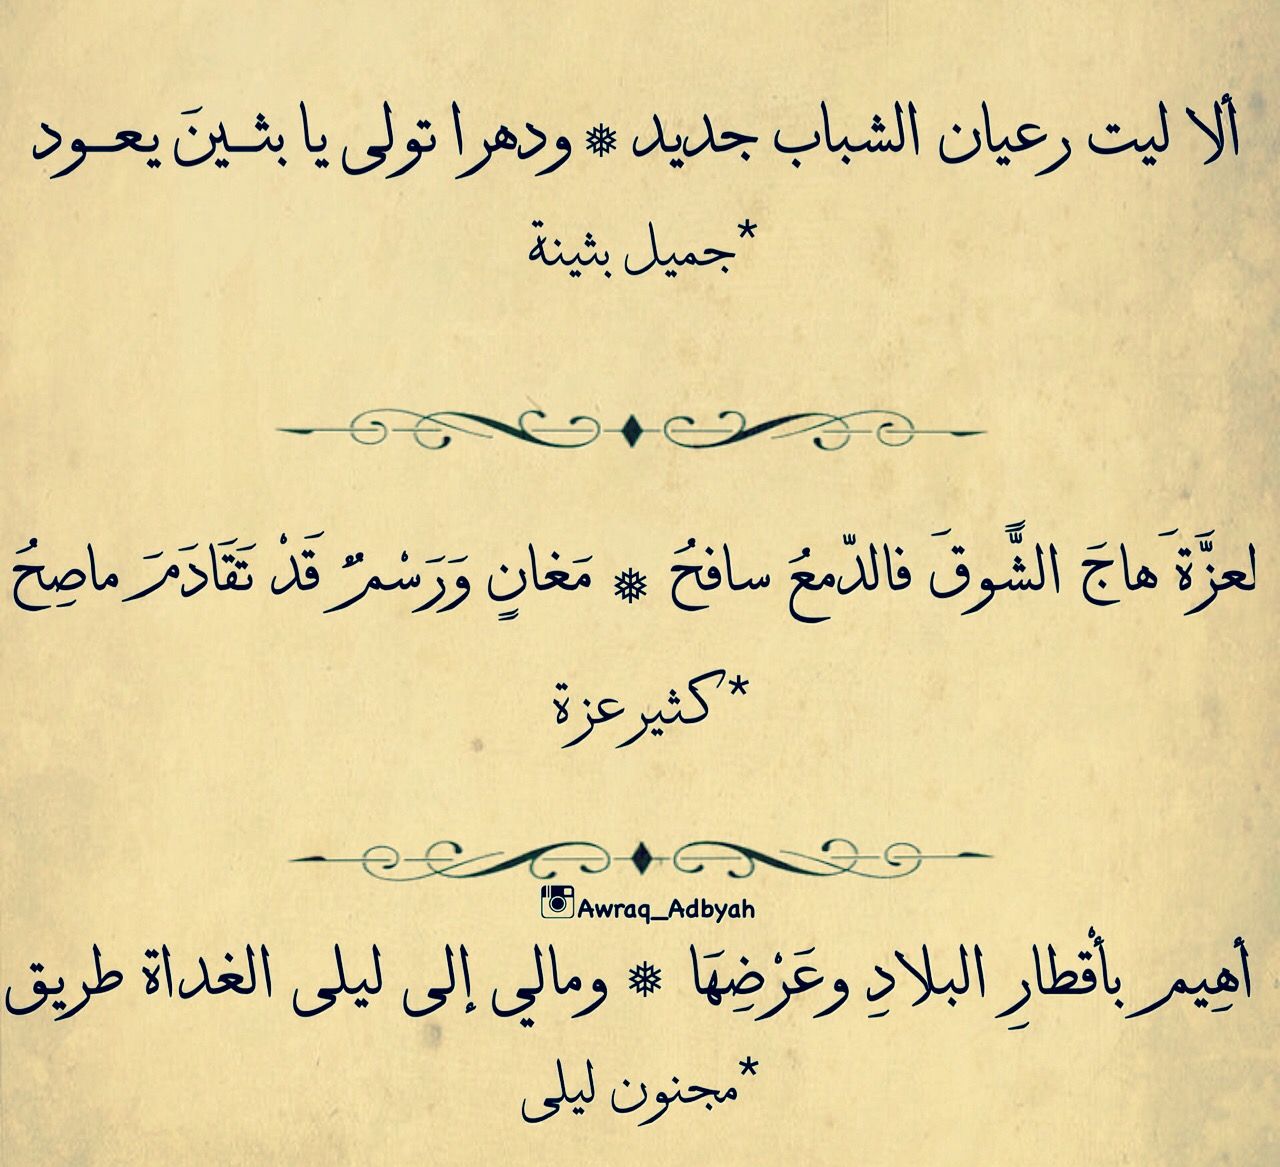 ألا ليت رعيان الشباب جديد ❅ ودهرا تولى يا بثـينَ يعـود
*جميل بثينة
لعزَّةَ هاجَ الشَّوقَ فالدّمعُ سافحُ ❅ مَغانٍ وَرَسْمٌ قَدْ تَقَادَمَ ماصِحُ
*كثيرعزة
Awraq_Adbyah
أهِيم بأقْطارِ البلادِ وعَرْضِهَا ❅ ومالي إلى ليلى الغداة طريق
*مجنون ليلى